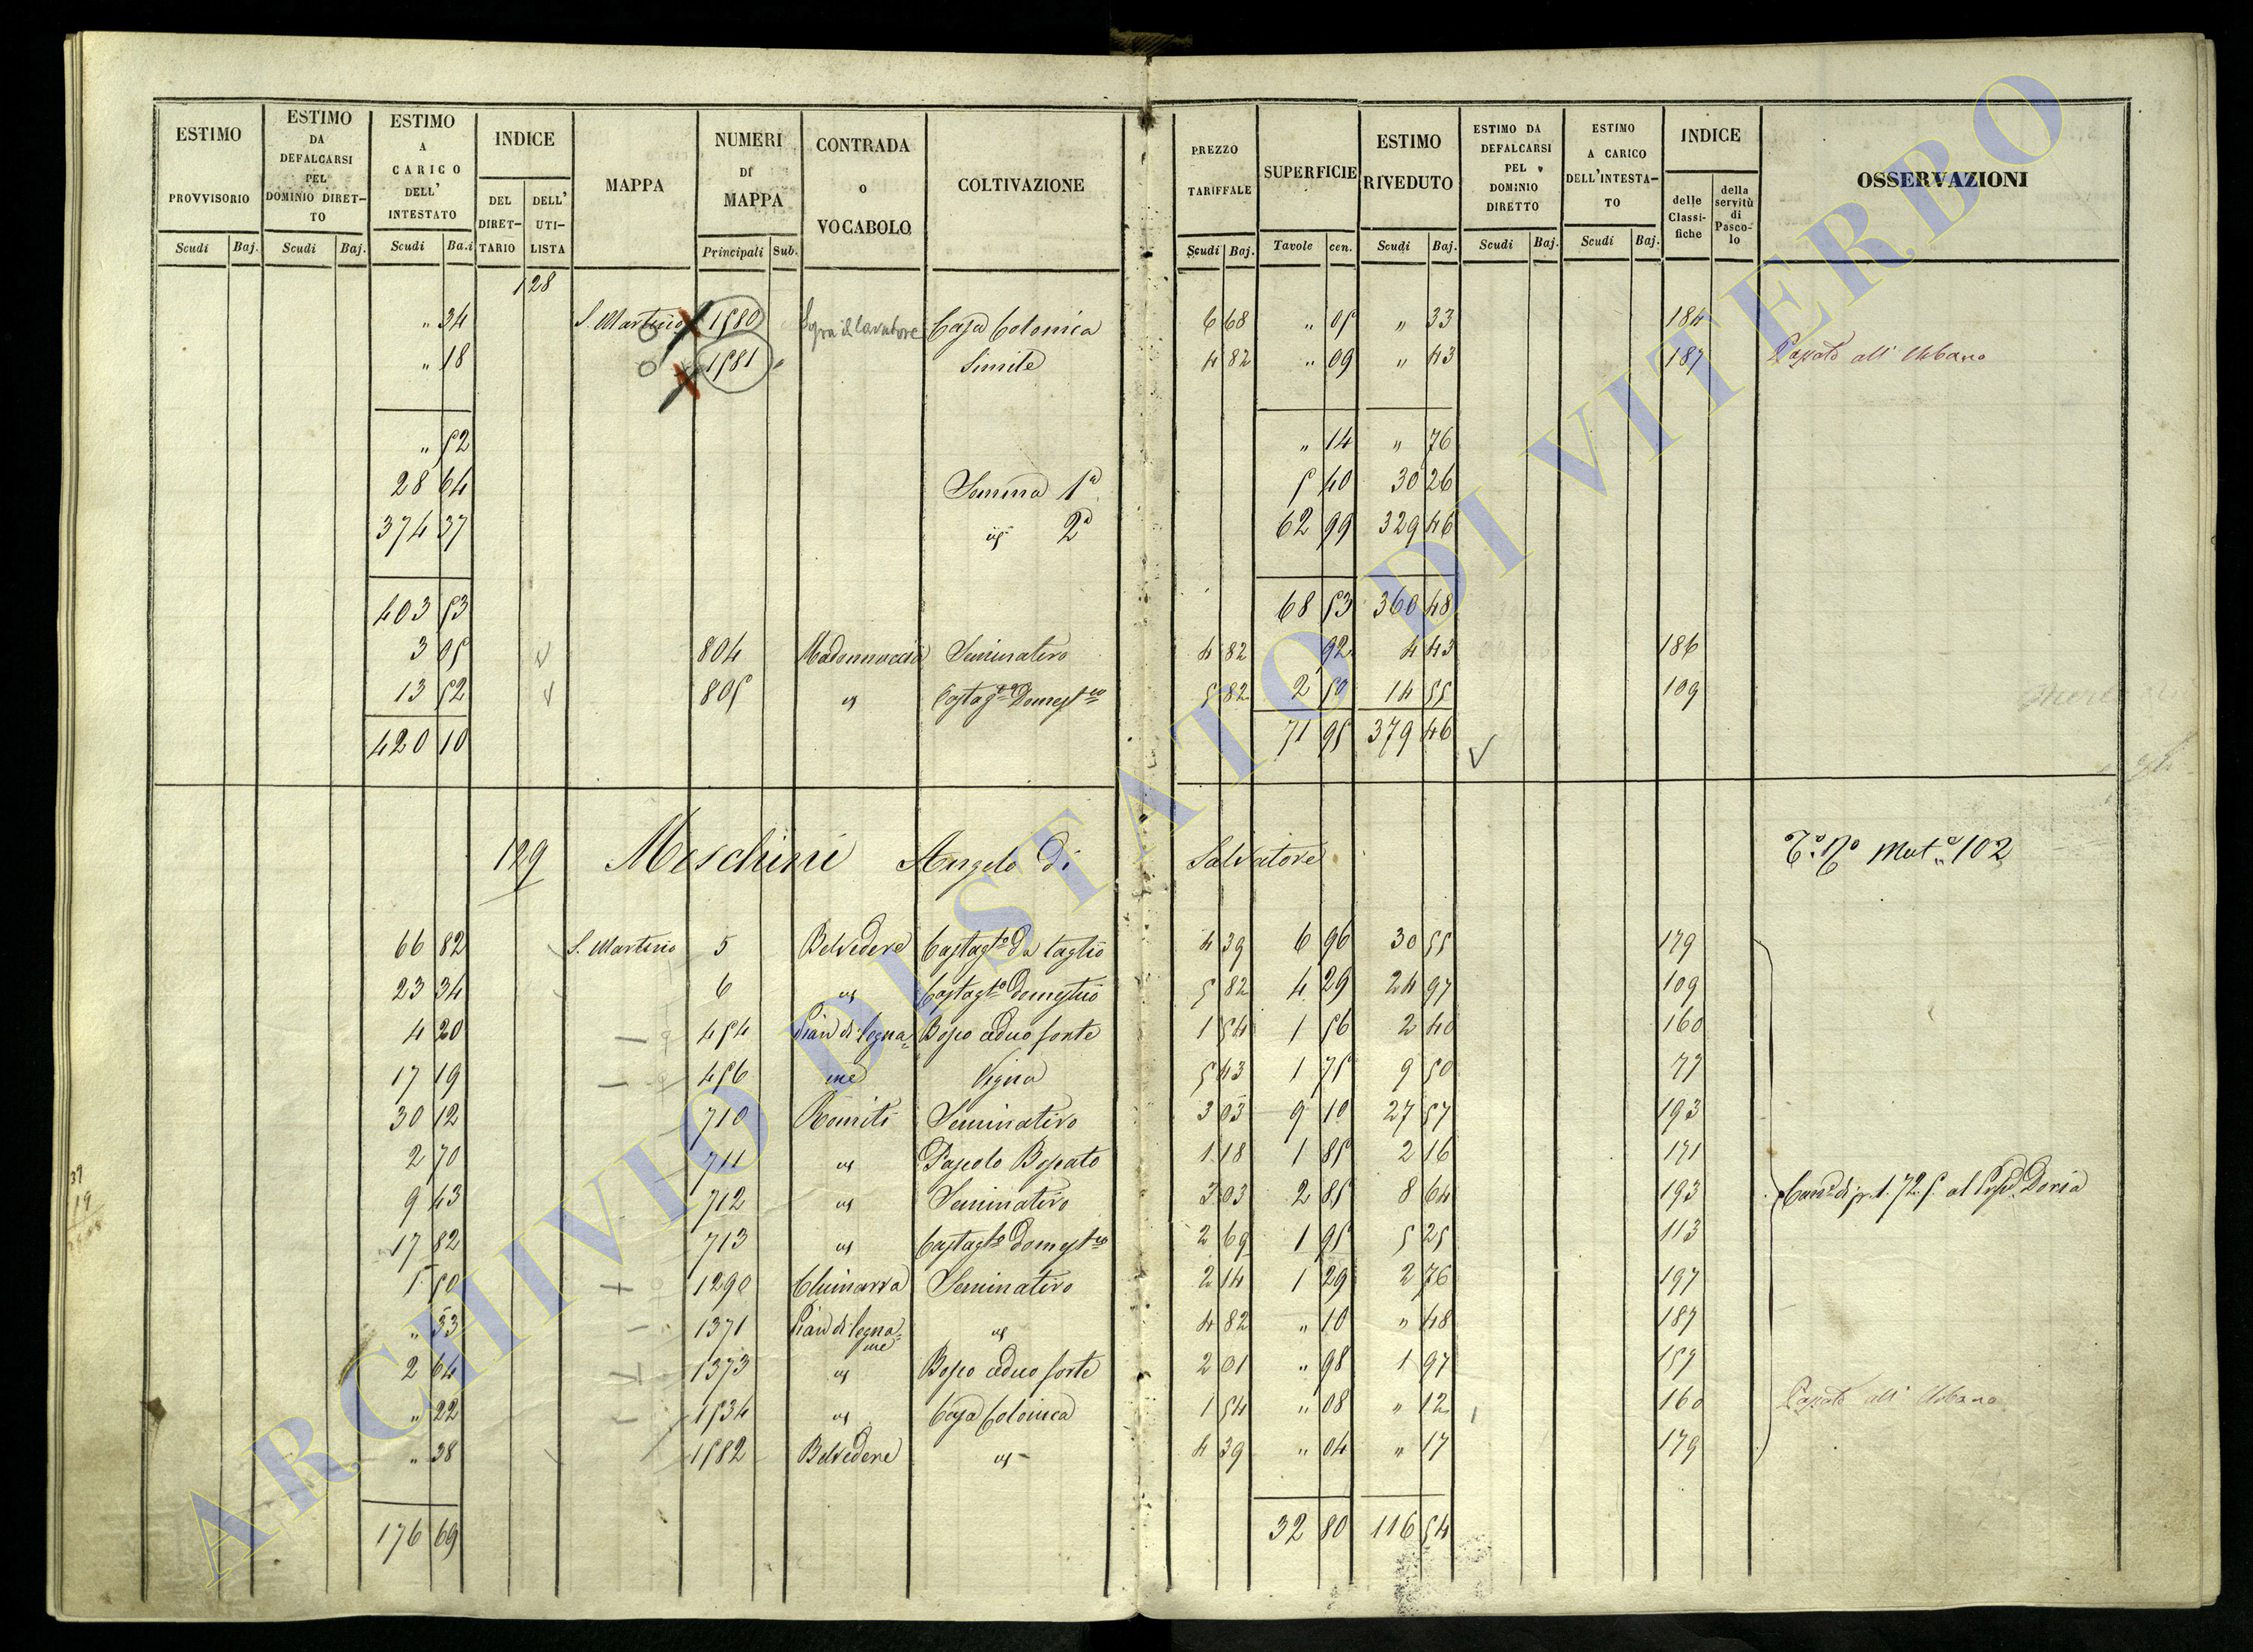 ESTIMO PROVVISORIO Scudi Baj.
ESTIMO DA DEFALCARSI PEL DOMINIO DIRET-TO Scudi Baj.
ESTIMO A CARICO DELL' INTESTATO Scudi Ba.i
INDICE DEL DIRET-TARIO DELL' UTI-LISTA
MAPPA
NUMERI DI MAPPA Principali Sub.
CONTRADA o VOCABOLO
COLTIVAZIONE
PREZZO TARIFFALE Scudi Baj.
SUPERFICIE Tavole cen.
ESTIMO RIVEDUTO Scudi Baj.
ESTIMO DA DEFALCARSI PEL DOMINIO DIRETTO Scudi Baj.
ESTIMO A CARICO DELL'INTESTA-TO Scudi Baj.
INDICE delle Classi-fiche della servitù di Pasco-lo
OSSERVAZIONI
128
" 34 S. Martino 1580 Casa Colonica 6 68 " 05 " 33 184
" 18 1581 Simile 4 82 " 09 " 43 187 Passato all' Urbano
" 52 " 14 " 76
28 64 Somma 1a 5 40 30 26
374 37 " 2a 62 99 329 46
403 53 68 53 360 48
3 05 804 Madonnuccia Seminativo 4 82 92 4 43 186
13 52 805 " Castagto Domestco 5 82 2 50 14 55 109
420 10 71 95 379 46
129 Meschini Angelo di Salvatore Mut.a 102
66 82 S. Martino 5 Belvedere Castagto da taglio 4 39 6 96 30 55 179
23 34 6 " Castagto domestico 5 82 4 29 24 97 109
4 20 454 Pian di legna= Bosco ceduo forte 1 54 1 56 2 40 160
17 19 456 me Vigna 5 43 1 75 9 50 77
30 12 710 Romiti Seminativo 3 03 9 10 27 57 193
2 70 711 " Pascolo Boscato 1 18 1 85 2 16 171
9 43 712 " Seminativo 3 03 2 85 8 64 193
17 82 713 " Castagto domestco 2 69 1 95 5 25 113
1 50 1290 Chimarra Seminativo 2 14 1 29 2 76 197
" 33 1371 Pian di legna=me " 4 82 " 10 " 48 187
2 64 1373 " Bosco ceduo forte 2 01 " 98 1 97 159
" 22 1534 " Casa Colonica 1 54 " 08 " 12 160 Passato all' Urbano
" 38 1582 Belvedere " 4 39 " 04 " 17 179
176 69 32 80 116 54
al Doria
ARCHIVIO DI STATO DI VITERBO